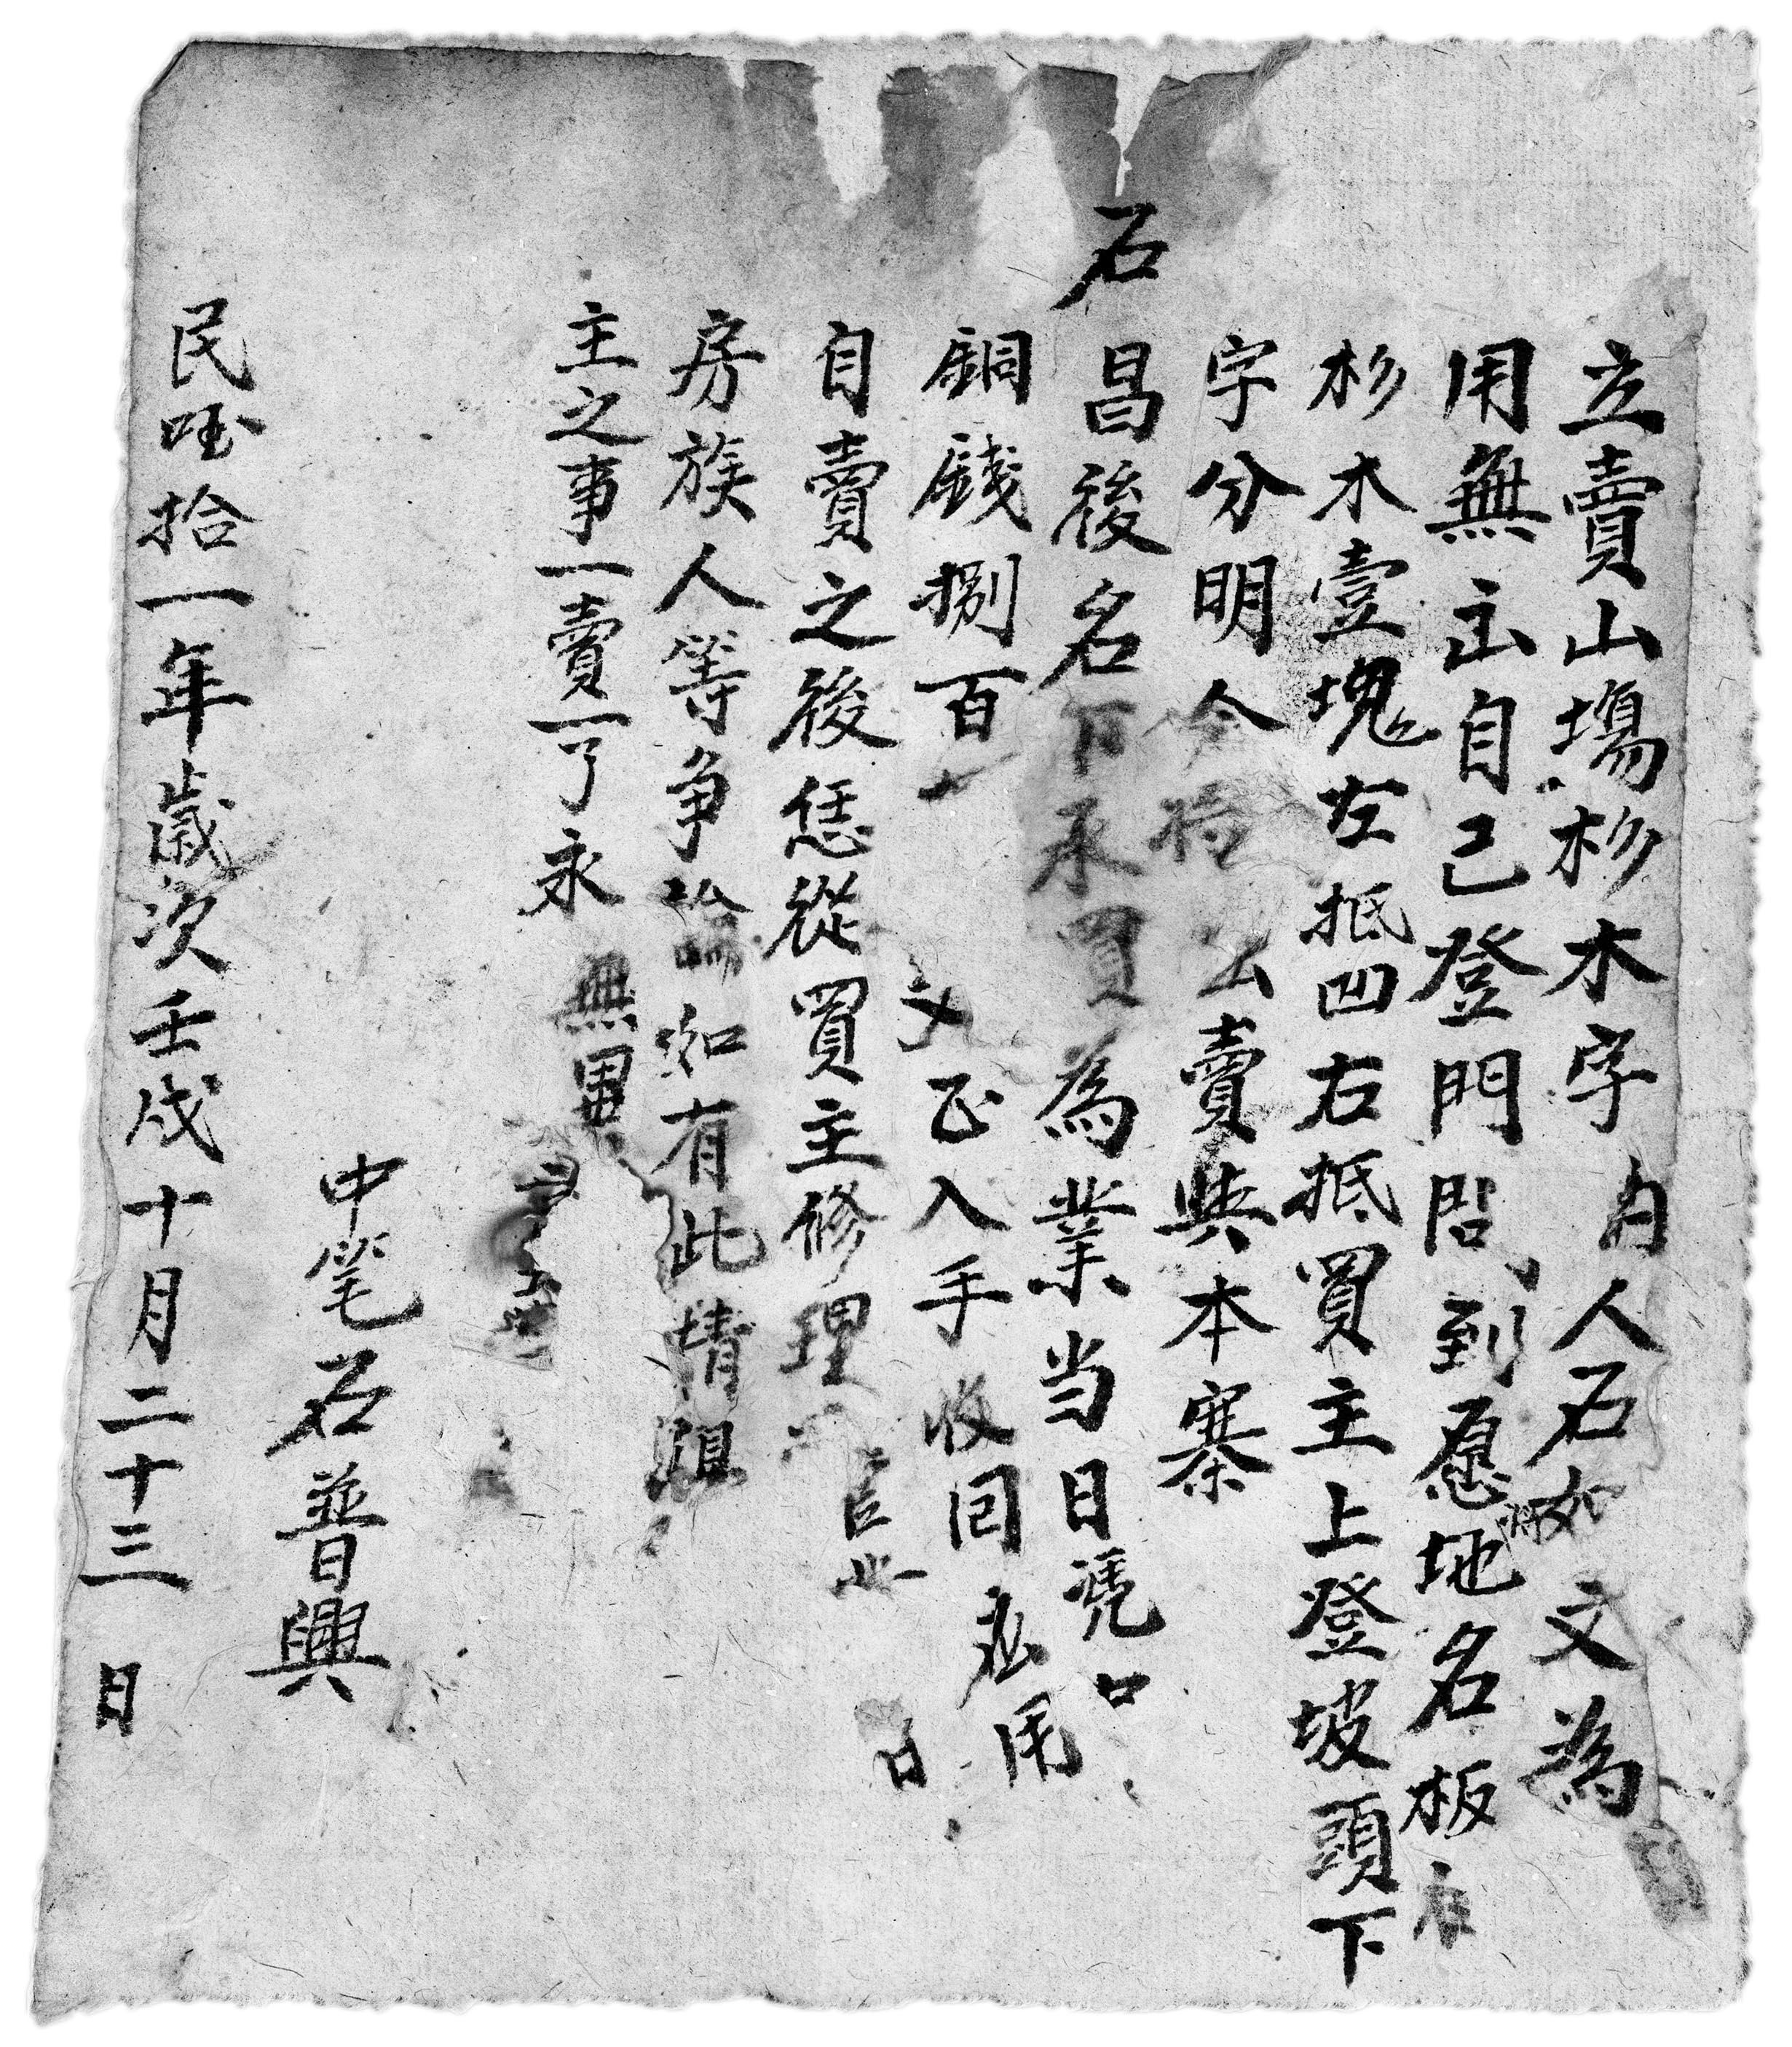 立賣山塲杉木字人石如文為
用無出自己登門問到愿地名板
杉木壹塊左抵凹右抵買主上登坡頭下
字分明今将出賣與本寨
石昌後名下承買為業当日凭口
銅錢捌百文正入手收回私用
自賣之後恁從買主修理
房族人等争論如有此情俱
主之事一賣一了永無
中笔石普興
民國拾一年歲次壬戌十月二十三日